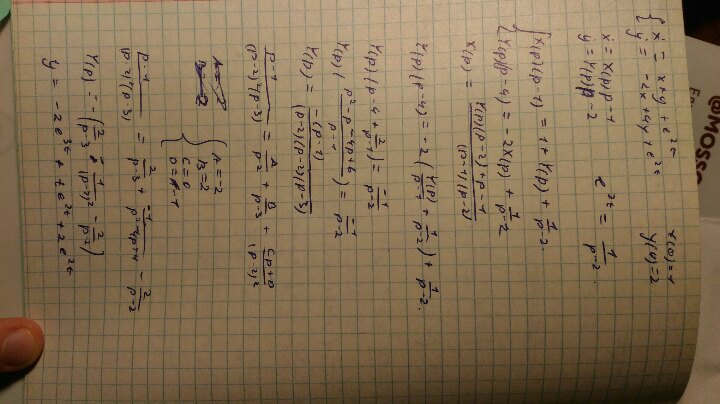 { ẋ = x+y+e^{2t} x(0)=1
ẏ = -2x+4y+e^{2t} y(0)=2
ẋ = X(p)p-1 e^{2t} = 1/(p-2)
ẏ = Y(p)p-2
{ X(p)(p-1) = 1+Y(p)+1/(p-2)
Y(p)(p-4) = -2X(p)+1/(p-2)
X(p) = (Y(p)(p-2)+p-1)/((p-1)(p-2))
Y(p)(p-4) = -2(Y(p)/(p-1)+1/(p-2))+1/(p-2)
Y(p)(p-4+2/(p-1)) = -1/(p-2)
Y(p)((p²-p-4p+6)/(p-1)) = -1/(p-2)
Y(p) = -(p-1)/((p-2)(p-2)(p-3))
(p-1)/((p-2)²(p-3)) = A/(p-2)+B/(p-3)+(Cp+D)/(p-2)²
A=-2
B=2
C=0
D=-1
(p-1)/((p-2)²(p-3)) = 2/(p-3)+(-1)/(p²-4p+4)-2/(p-2)
Y(p) = -(2/(p-3)-1/(p-2)²-2/(p-2))
y = -2e^{3t}+te^{2t}+2e^{2t}
@MOSSO